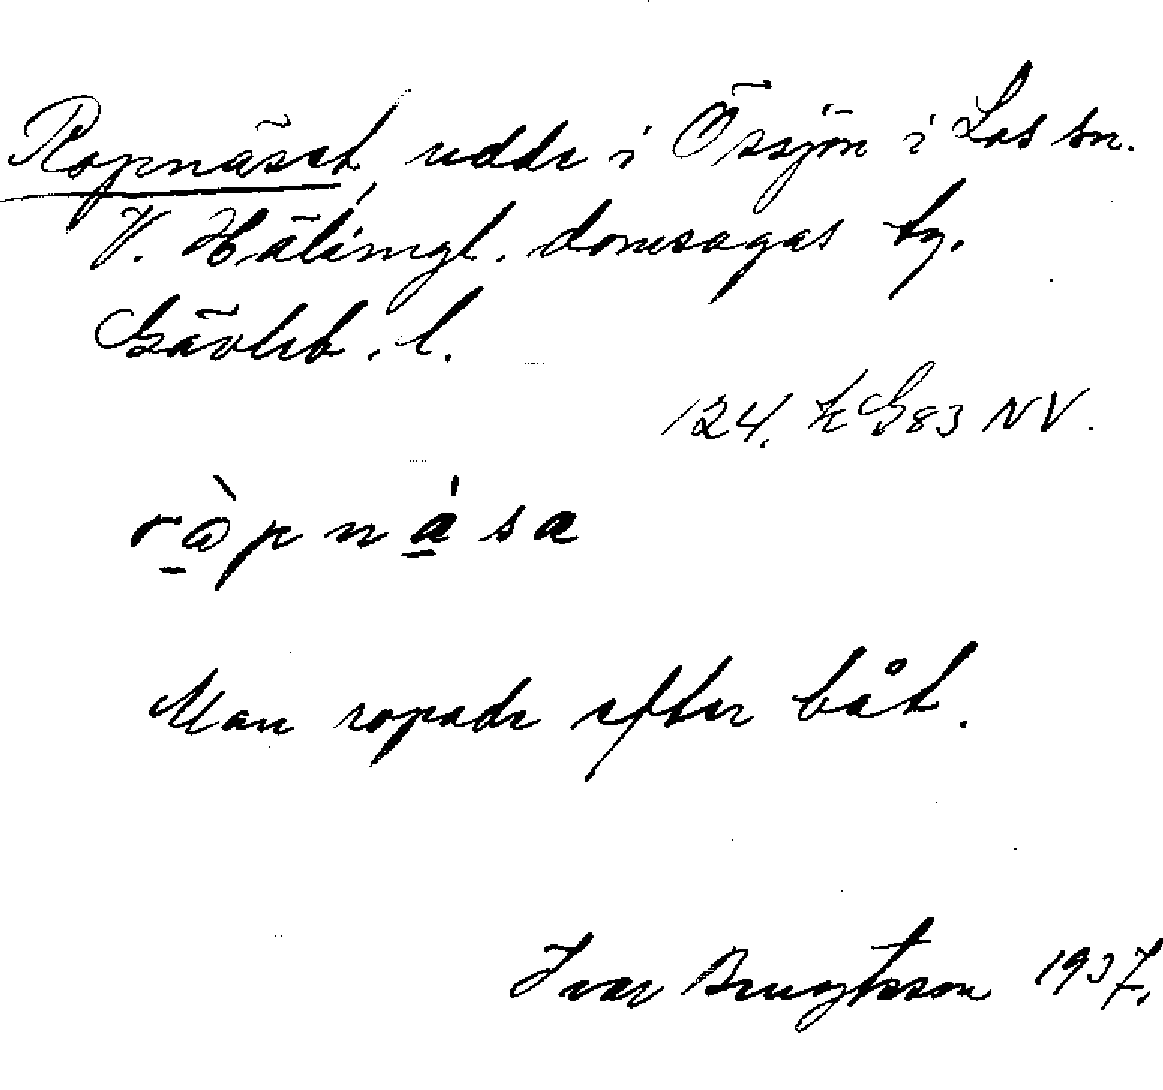 Ropnäset, udde i Össjön i Los sn.
V. Hälsingl. domsagas tg.
Gävleb. l.
124. K G83 NV.
ròpnása
Man ropade efter båt.
Ivar Bengtsson 1937.